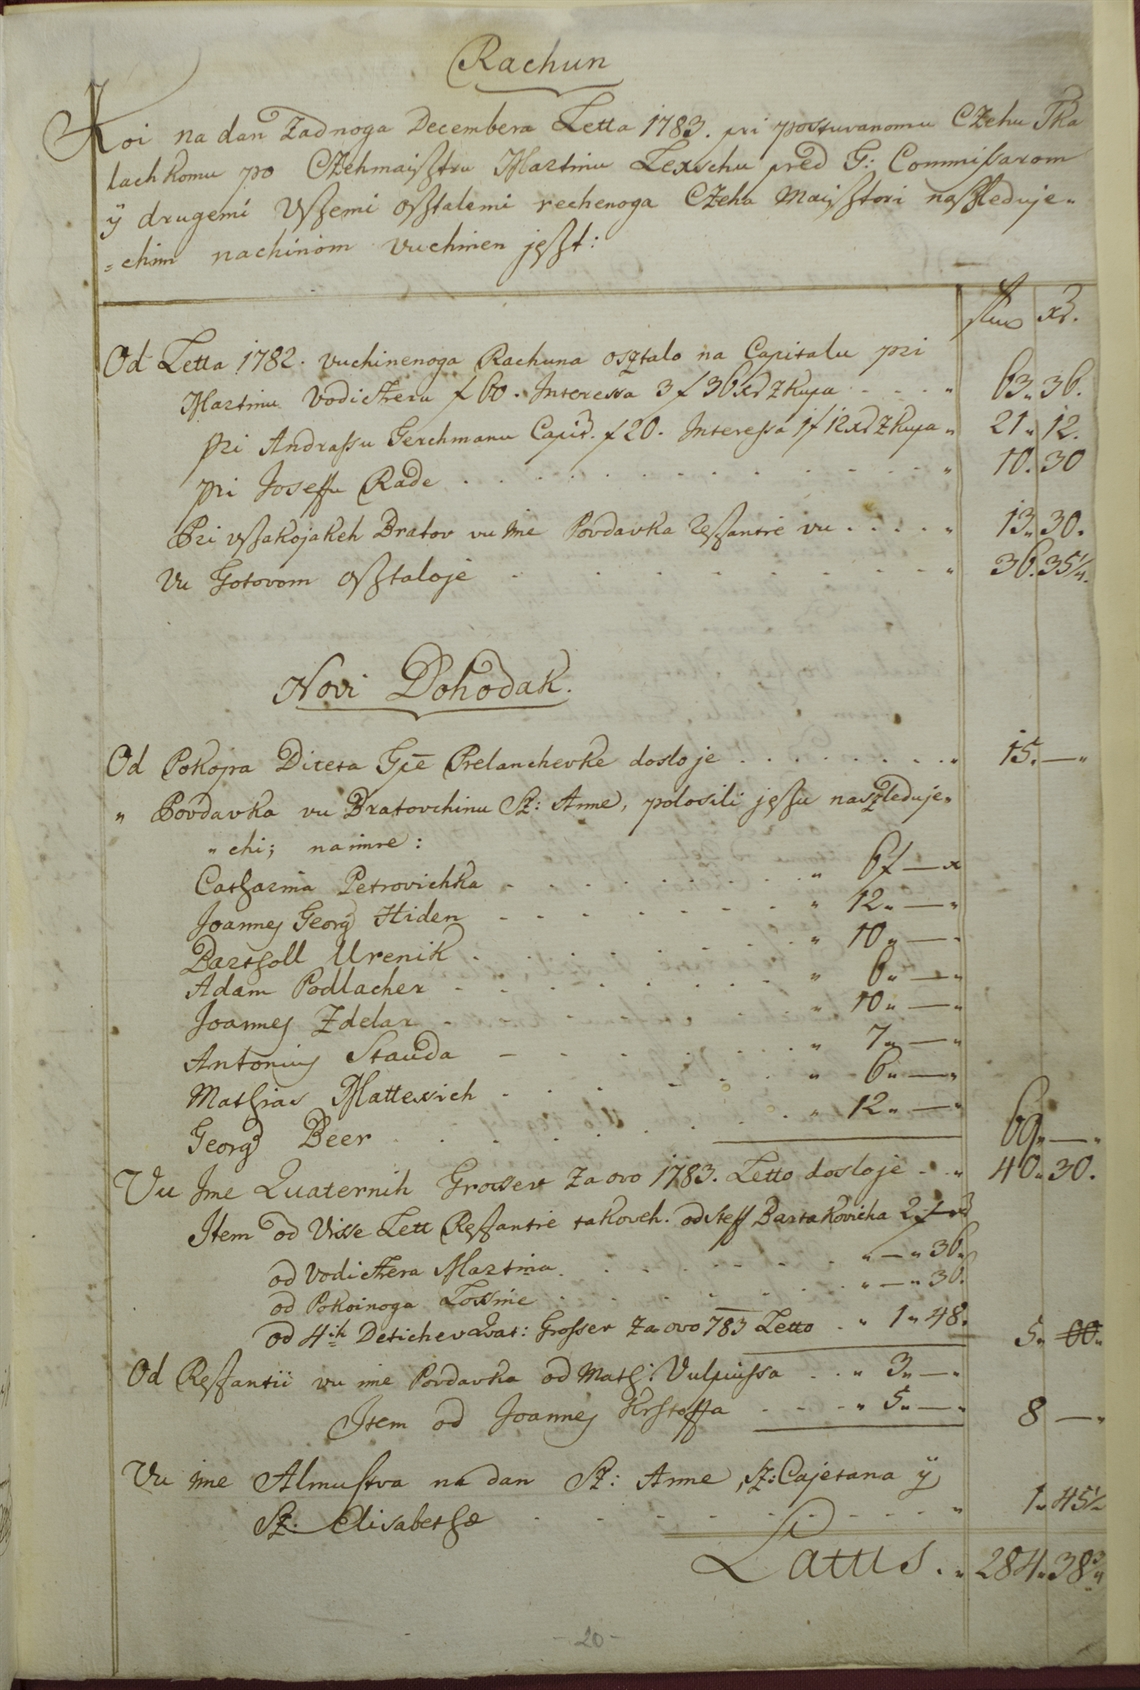 Rachun
Koi na dan Zadnoga Decembera Letta 1783. pri postuvanomu CZehu Tka
lachkomu po CZehmaisztru Martinu Lexschu pred G: Commissarom
ÿ drugemi Vszemi osztalemi rechenoga CZeha Maisztori naszleduje„
„chim nachinom vuchinen jeszt:
xr.
Od Letta 1782. vuchinenoga Rachuna osztalo na Capitalu pri
Martinu Vodichzeru f 60. Interessa 3 f 36 xr Zkupa „ 63„36.
pri Andrassu Gerchmanu Capit. f 20. Interessa 1 f 12 xr Zkupa „ 21„12.
pri Joseffu Rade „ 10.30
Pri vszakojakeh Bratov vu ime Povdavka Resztantie vu „ 13„30.
Vu Gotovom osztaloje „ 36.35¼.
Novi Dohodak.
Od Pokojra Diteta Gče Prelanchevke dosloje „ 15.—„
„ Povdavka vu Bratovchinu Sz: Anne, polosili jeszu naszleduje„
„chi; naimre:
Catharina Petrovichka „ 6 f — x
Joannes Georg Hiden „ 12„—„
Barthol Urenik „ 10„—„
Adam Podlacher „ 6„—„
Joannes Zdelar „ 10„—„
Antonius Stauda „ 7„—„
Mathias Mattexich „ 6„—„
Georg Beer „ 12„—„ 69„—„
Vu Ime Quaternih Grosser Za ovo 1783. Letto dosloje „ 40„30.
Item od Visse Lett Resztantie takoveh. od Steff Bartakovicha 2 f — xr
od Vodichzera Martina „—„36„
od Pokoinoga Lossine „—„36.
od 4ih Detichev Quat: Grosser Za ovo 783 Letto „ 1„48. 5„ 00„
Od Resztantii vu ime Povdavka od Math: Vulpiussa „ 3„—„
Item od Joannes Krsteffa „ 5„—„ 8 —„
Vu ime Almustva na dan Sz: Anne, Sz: Cajetana ÿ
Sz. Elisabethe „ 1„45½
Lattus. „ 284„38¾„
- 20 -